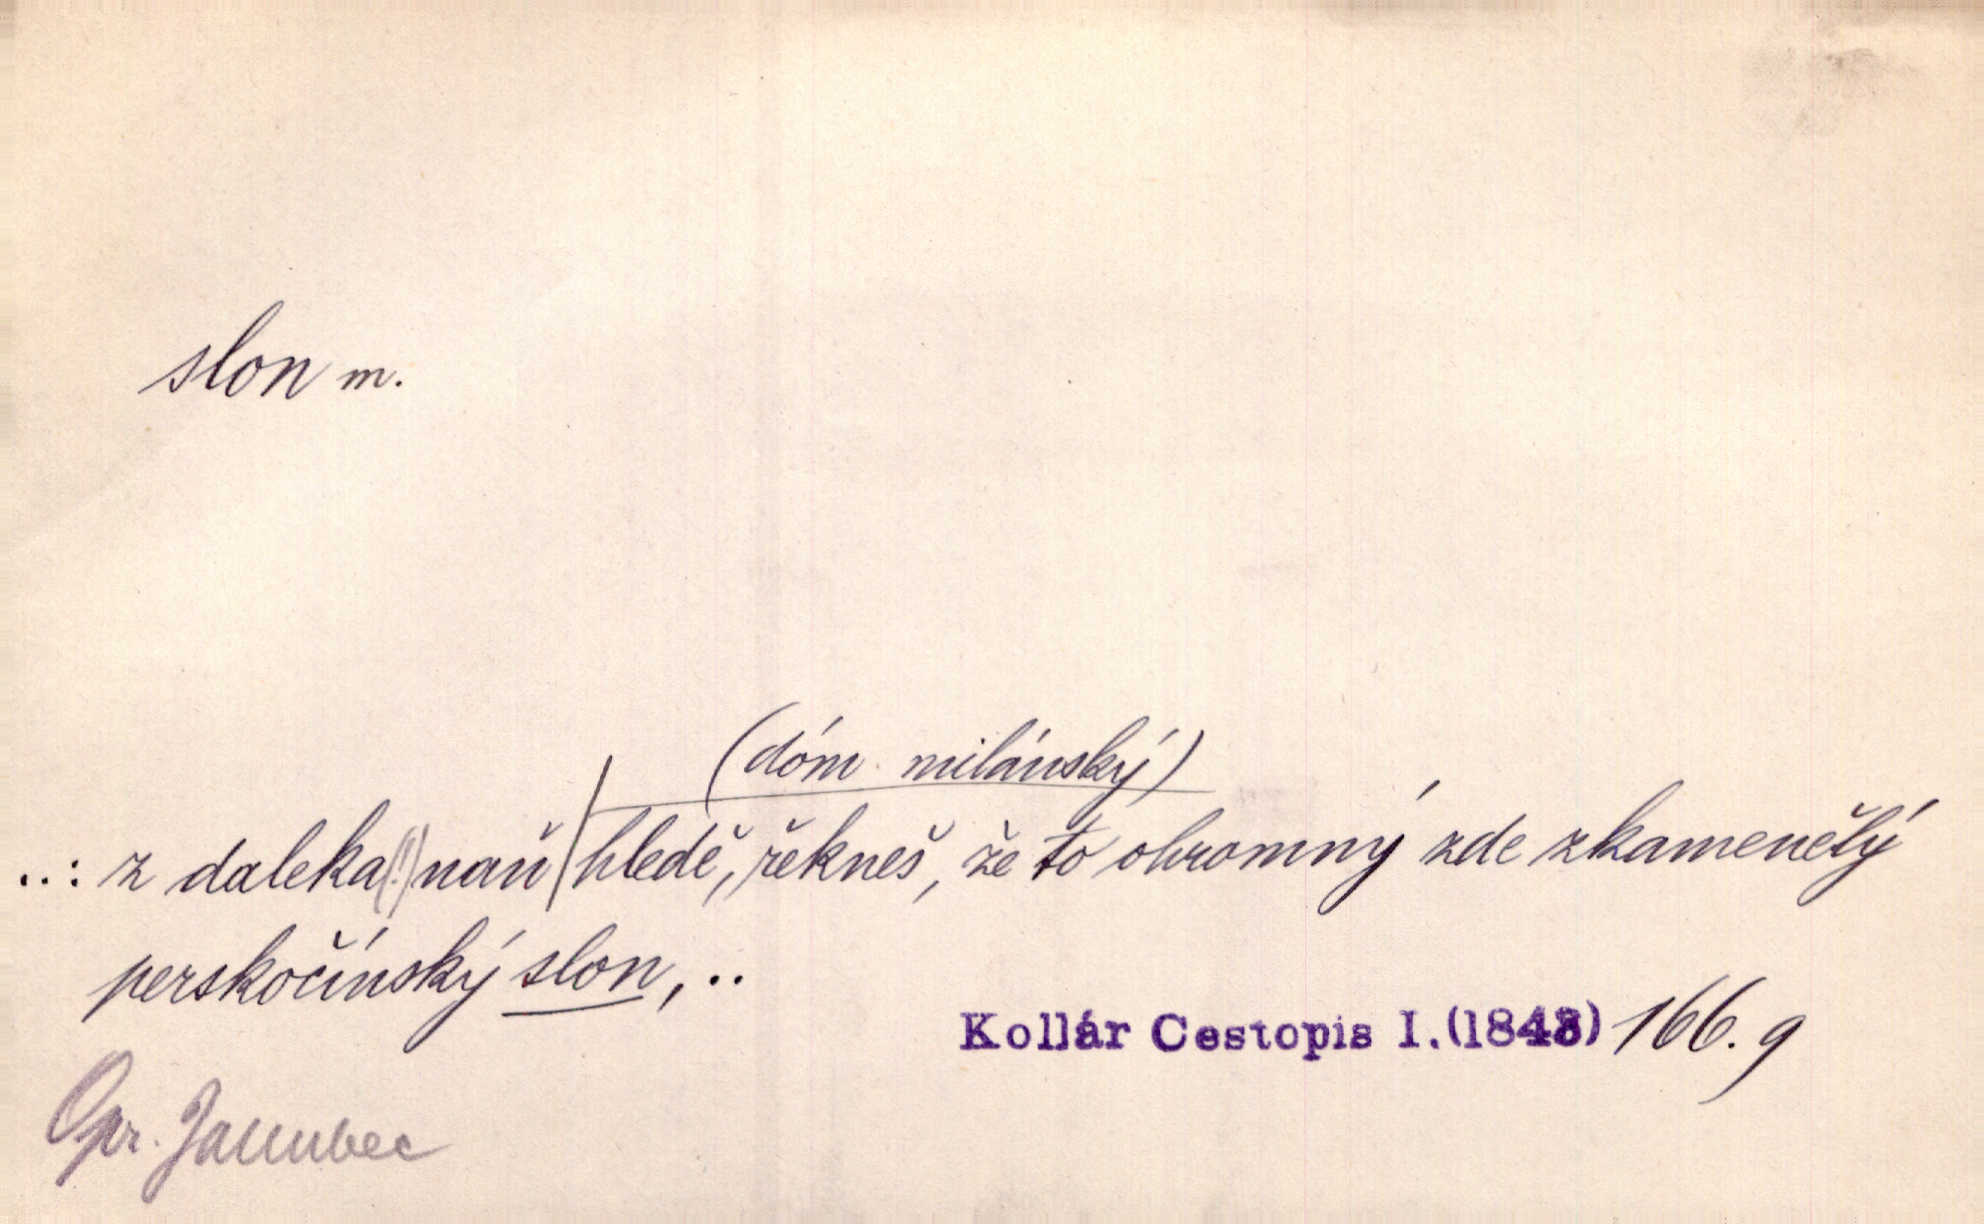 slon m.
(dóm milánský)
..: z daleka(!) naň / hledě, řekneš, že to ohromný zde zkamenělý
perskočínský slon, ..
Kollár Cestopis I.(1843) 166. 9
Opr. Janubec